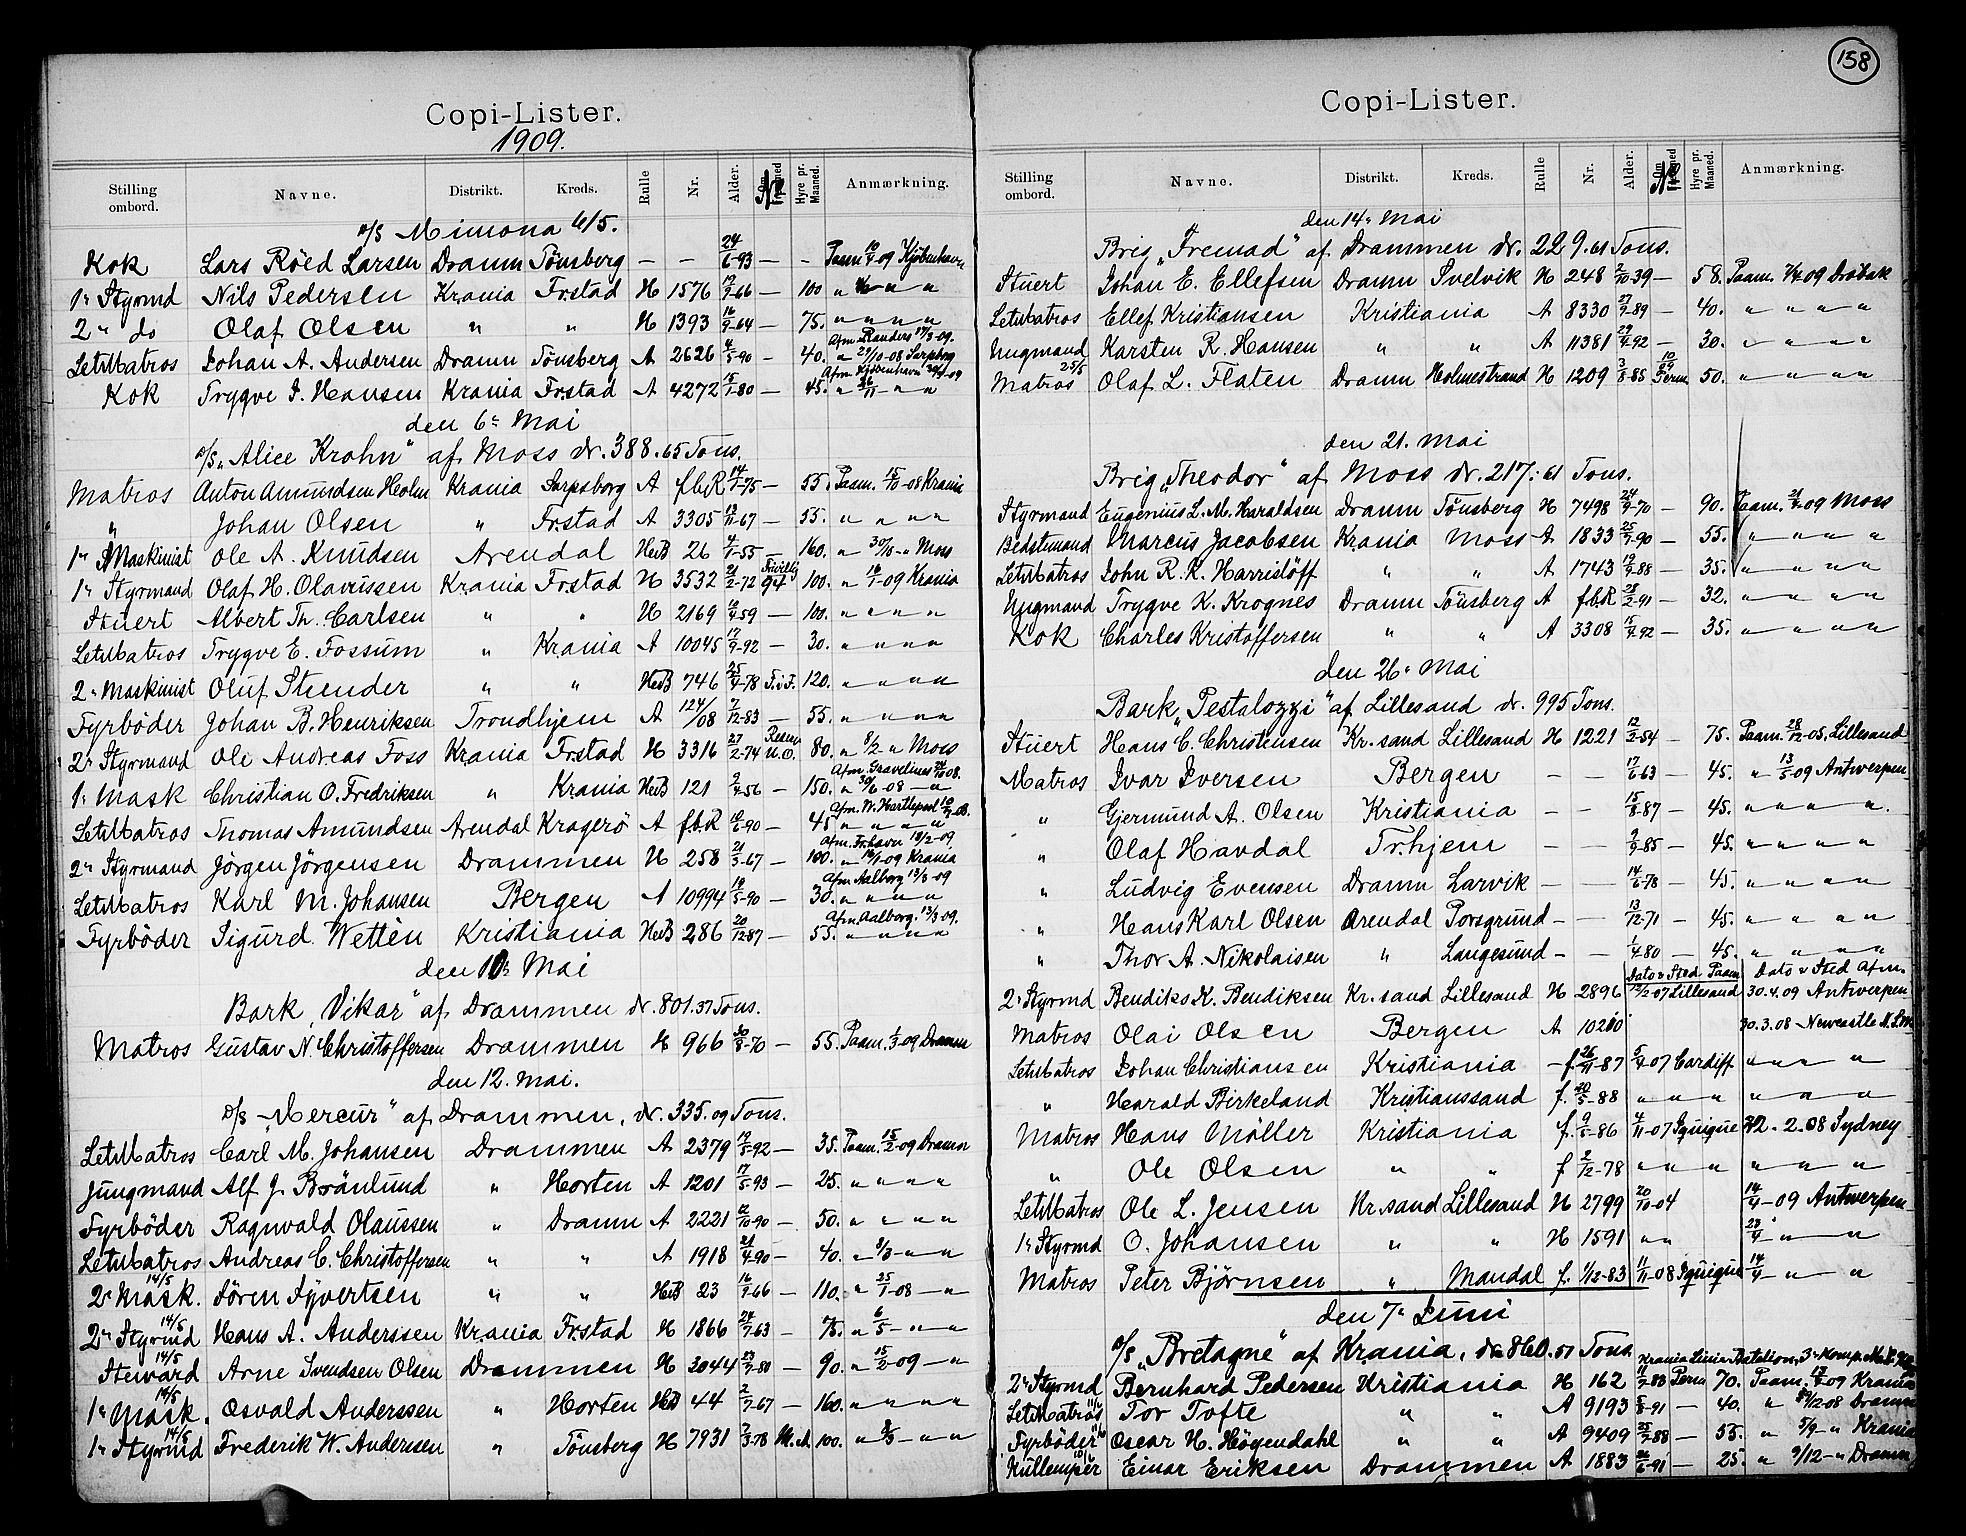 Copi-Lister.
1909.
Stilling ombord. Navne. Distrikt. Kreds. Rulle Nr. Alder. Hyre pr. Maaned. Anmærkning.
D/S Mimona 4/5.
Kok Lars Röed Larsen Dramn Tönsberg — — 24/6-93 — - Paam 10/4-09 Kjöbenhavn
1ste Styrmd Nils Pedersen Krania Frstad H 1576 — 100 " " "
2" do Olaf Olsen " " H 1393 16/9-64 — 75. " " " "
Afm. Randers 17/3-09.
LetMatros Johan A. Andersen Dramn Tönsberg A 2626 4/5-90 — 40. " 29/10-08 Sarpsborg
Afm Kjöbenhavn
Kok Trygve J. Hansen Krania Frstad A 4272 15/1-80 — 45. " " "
den 6te Mai
D/S „Alice Krohn" af Moss dr. 388.65 Tons.
Matros Anton Amundsen Holm Krania Sarpsborg A f.b.R 14/7-75 — 55. Paam. 15/10-08 Krania
" Johan Olsen " Frstad A 3305 13/11-67 — 55. " " " "
1ste Maskinist Ole A. Knudsen Arendal HedB 26 4/1-55 — 160. " 30/10 - " Moss
1ste Styrmand Olaf H. Olavussen Krania Frstad H 3532 21/2-72 Frivillig 94 100. " 16/1-09 Krania
Stuert Albert Th. Carlsen " " H 2169 12/4-59 — 100. " " " "
LetMatros Trygve E. Fossum " Krania A 10045 17/9-92 — 30. " " " "
2" Maskinist Oluf Stender " " HedB 746 25/4-78 F.i.F. 120. " " " "
Fyrböder Johan B. Henriksen Trondhjem A 124/08 7/12-83 — 55. " " " "
2" Styrmand Ole Andreas Foss Krania Frstad H 3316 27/2-74 U.O. 80. " 8/2 " Moss
Afm. Gravelines
1ste Mask Christian O. Fredriksen " Krania HedB 121 2/4-56 — 150. " 30/6-08 — "
Afm. W. Hartlepool
LetMatros Thomas Amundsen Arendal Kragerö A f.b.R 10/6-90 — 45 " " " "
Afm. Fr.havn 18/2-09
2" Styrmand Jörgen Jörgensen Drammen H 258 21/3-67 — 100. " 16/1-09 Krania
Afm Aalborg 13/3-09
LetMatros Karl M. Johansen Bergen A 10994 19/5-90 — 30. " " " "
Afm. Aalborg. 13/3-09.
Fyrböder Sigurd Wettén Kristiania HedB 286 20/12-87 — 55. " " " "
den Mai
Bark „Vikar" af Drammen dr. 801.37 Tons.
Matros Gustav N. Christoffersen Drammen H 966 30/8-70 — 55. Paam. 1/3-09 Dramn
den 12. Mai.
D/S „Mercur" af Drammen, dr. 335.09 Tons.
LetMatros Carl M. Johansen Drammen A 2379 19/5-92 — 35. Paam. 15/2-09 Dramn
Jungmand Alf J. Brönlund " Horten A 1201 17/5-93 — 25. " " " "
Fyrböder Ragnvald Olaussen " Dramn A 2221 12/10-90 — 50. " " " "
LetMatros Andreas C. Christoffersen " " A 1918 21/4-90 — 40. " 8/3 - " - "
14/5
2" Mask. Sören Syvertsen " " HedB 23 16/7-66 — 110. " 25/7-08 — "
14/5
2" Styrmd Hans A. Anderssen Krania Frstad H 1866 24/7-63 — 75. " 6/5 - " - "
14/5
Steward Arne Svendsen Olsen Drammen H 3044 23/7-80 — 90. " 15/2-09 — "
14/5
1ste Mask. Osvald Anderssen " Horten HedB 44 2/7-67 — 160. " " " "
14/5
1ste Styrmd Frederik W. Anderssen " Tönsberg H 7931 7/3-78 M.A. 100. " " "
158
Copi-Lister.
Stilling ombord. Navne. Distrikt. Kreds. Rulle Nr. Alder. Hyre pr. Maaned. Anmærkning.
den 14de Mai
Brig „Fremad" af Drammen dr. 229.61 Tons.
Stuert Johan E. Ellefsen Dramn Svelvik H 248 2/10-39 — 58. Paam. 7/4-09 Dröbak
LetMatros Ellef Kristiansen Kristiania A 8330 27/7-89 — 40. " " " "
Ungmand Karsten R. Hansen " " A 11381 29/4-92 — 30. " " " "
25/5
Matros Olaf L. Flaten Dramn Holmestrand H 1209 3/8-85 Perm. 50. " " " "
den 21. Mai
Brig „Theodor" af Moss dr. 217:61 Tons.
Styrmand Eugenius L. M. Haraldsen Dramn Tönsberg H 7498 24/9-70 — 90. Paam. 21/4-09 Moss
Bedstmand Marcus Jacobsen Krania Moss A 1833 25/7-90 — 55. " " " "
LetMatros John R. K. Harrislöff " " A 1743 19/5-88 — 35. " " " "
Ungmand Trygve K. Krognes Dramn Tönsberg A f.b.R 28/2-91 — 32. " " " "
Kok Charles Kristoffersen " " A 3308 15/4-92 — 35. " " " "
den 26de Mai
Bark „Pestalozzi" af Lillesand dr. 995 Tons.
Stuert Hans C. Christensen Kr.sand Lillesand H 1221 12/2-54 — 75. Paam. 28/12-05, Lillesand
Matros Ivar Iversen Bergen — — 17/6-63 — 45. " 13/5-09 Antwerpen
" Gjermund A. Olsen Kristiania — — 15/8-87 — 45. " " " "
" Olaf Havdal Tr.hjem — — 2/9-85 — 45. " " " "
" Ludvig Evensen Dramn Larvik — — 14/6-78 — 45. " " " "
" Hans Karl Olsen Arendal Porsgrund — — 13/12-71 — 45. " " " "
" Thor A. Nikolaisen " Langesund — — 1/4-80 — 45. " " " "
Dato & Sted Paam Dato & Sted Afm.
2" Styrmd Bendiks K. Bendiksen Kr.sand Lillesand H 2896 12/2-07 Lillesand 30.4.09 Antwerpen
Matros Olai Olsen Bergen A 10210 30.3.08 Newcastle N.S.W.
LetMatros Johan Christiansen Kristiania — f. 26/11-87 5/4-07 Cardiff " " " "
" Harald Birkeland Kristianssand f. 20/5-88 " " " " " "
Matros Hans Möller Kristiania f. 9/5-86 4/11-07 Iquique 22-2-08 Sydney
" Ole Olsen " " f 2/12-78 " " " " " "
LetMatros Ole L. Jensen Kr.sand Lillesand H 2799 20/10-04 14/4-09 Antwerpen
1ste Styrmd O. Johansen " " H 1591 " " 23/4 " "
Matros Peter Bjørnsen " Mandal f. 1/12-83 11/11-08 Iquique 14/4 - " - "
den 7de Juni
D/S „Bretagne" af Krania, dr. 860.51 Tons.
Krania Linie Batalion, 3die Komp.
2" Styrmd Bernhard Pedersen Kristiania H 162 11/7-83 Perm 70. Paam. Krania
LetMatros Tor Tofte " " A 9193 5/8-91 — 40. " Dramn
Fyrböder Oscar H. Höyendahl " " A 9409 25/7-88 — 55. " 5/9 - " Krania
Kullemper Einar Eriksen Drammen A 1883 — 25. " 9/12 - " Dramn